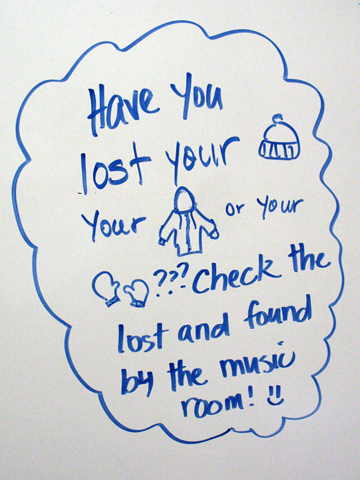 Have You
lost your
Your or your
??? check the
lost and found
by the music
room!